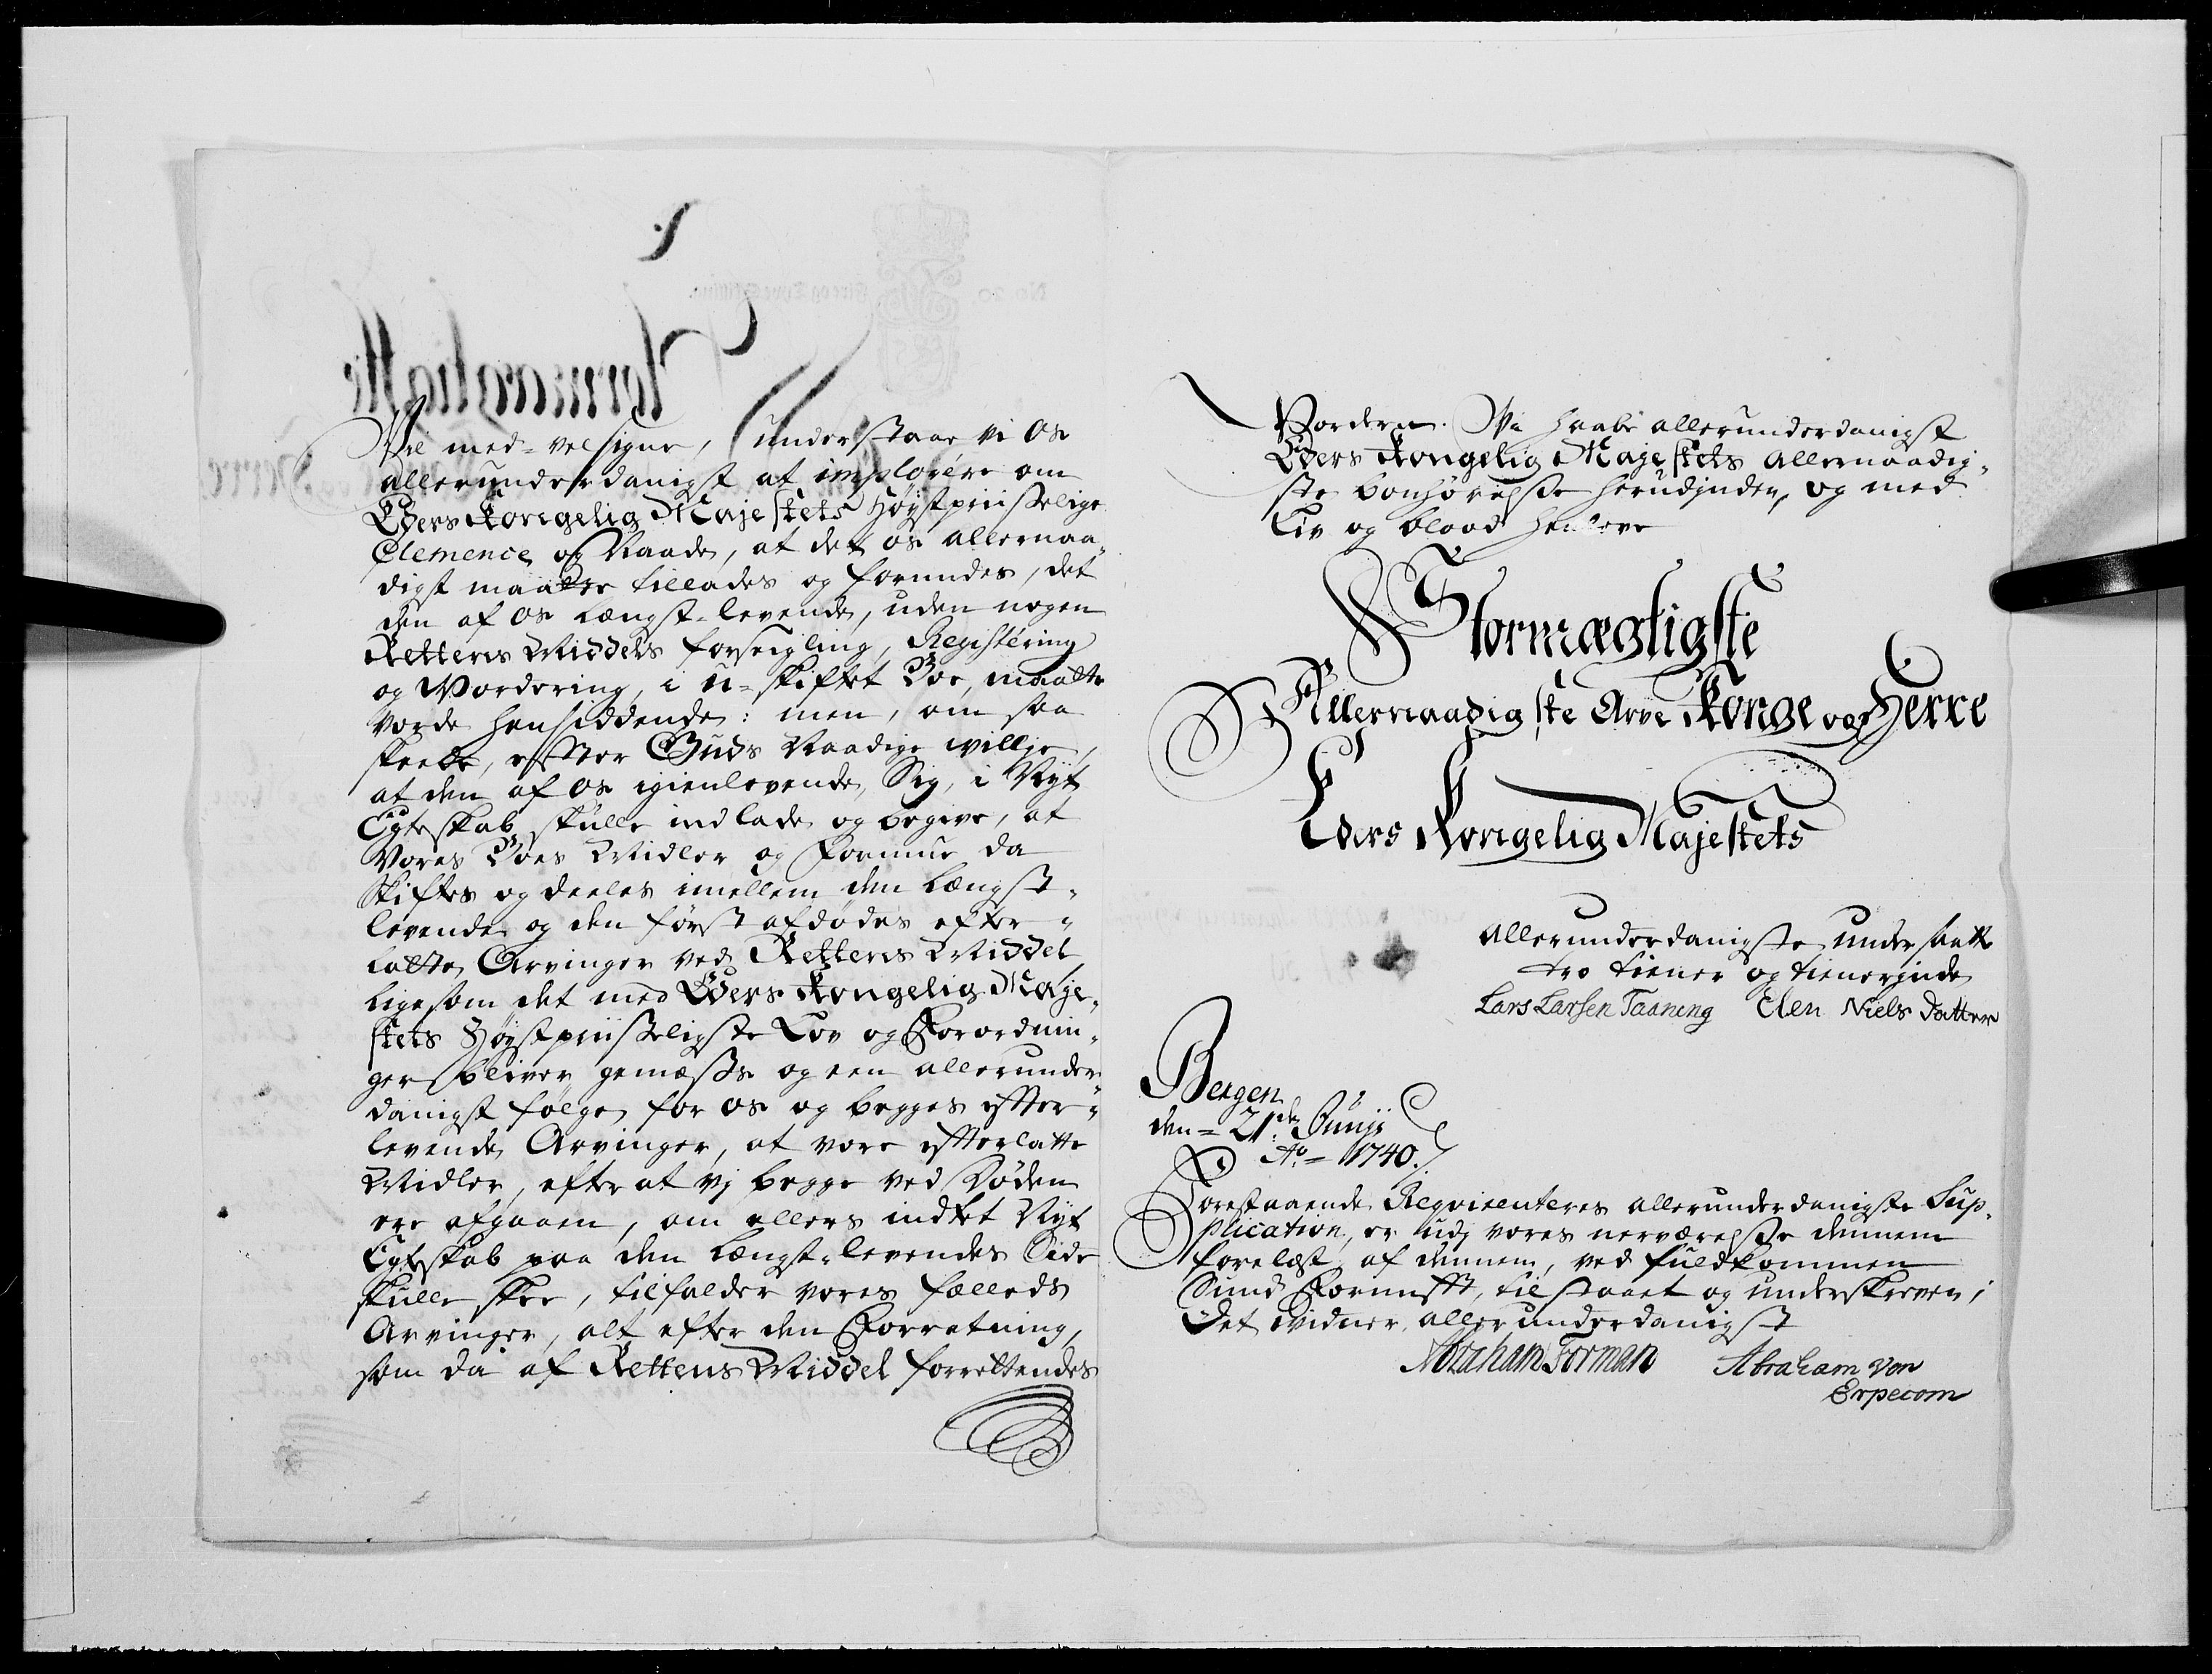 Vil med-velsigne, understaae vi os
allerunderdanigst at implorére om
Eders Kongelig Majestets Høystpriiselige
Clemence og Naade, at det os allernaa-
digst maatte tillades og forundes, det
den af os længst-levende, uden nogen
Rettens Middels forseigling, Registéring
og Vordering, i u-skiftet Boe, maatte
vorde hensiddende: men, om saa
skeede, efter Guds Naadige willje,
at den af os igienlevende, Sig, i Nyt
Egteskab skulle indlade og begive, at
Vores Boes Midler og Formue da
Skiftes og deeles imellem den længst-
levende og den først afdødes efter-
latte Arvinger ved Rettens Middel
ligesom det med Eders Kongelig Maje-
stets Høystpriiseligste Lov og Forordnin-
ger bliver gemæss og een allerunder-
danigst følge, for os og begges efter-
levende Arvinger, at vore efterlatte
Midler, efter at vj begge ved Døden
ere afgaaen, om ellers indtet Nyt
Egteskab paa den længst-levendes Side
skulle skee, tilfalder vores fælleds
Arvinger, alt efter den Forretning,
som da af Rettens Middel forrettendes
Vorder. Vi haabe allerunderdanigst
Eders Kongelig Majestets allernaadig-
ste bønhørelse herudjnden, og med
Liv og blood henleve
Stormægtigste
Allernaadigste Arve Konge og Herre
Eders Kongelig Majestets
allerunderdanigste undersaatte
tro tiener og tienerjnde
Lars Larsen Taaning Elen Niels Datter
Bergen
den = 21de Junij
Ao = 1740.
Forestaaende Reqvirenteres allerunderdanigste Sup-
plication, er udj vores nerværelse dennem
forelæst, af dennem, ved fuldkommen
Sund Fornufft, tilstaaet og underskreven,
Det vidner allerunderdanigst
Abraham Forman Abraham von
Erpecom